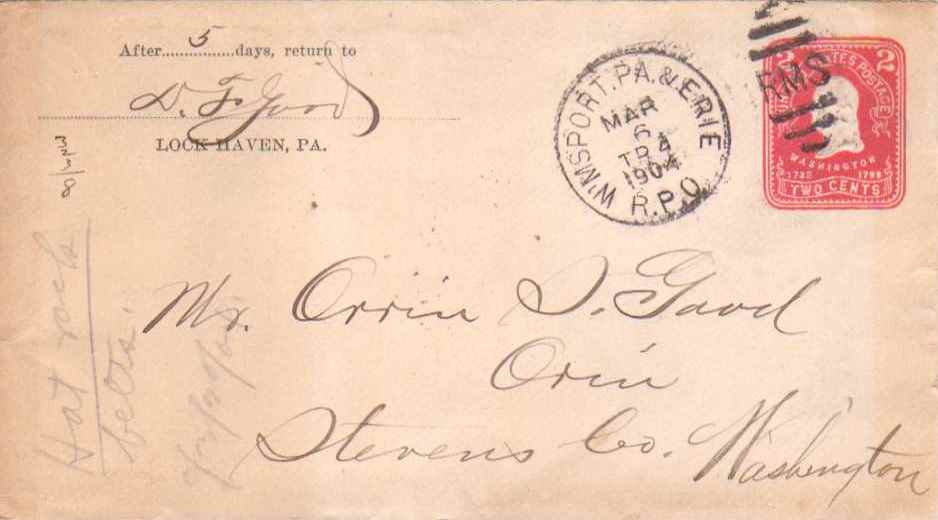 After 5 days, return to
D. F. Good
LOCK HAVEN, PA.
W'MSPORT. PA. & ERIE
MAR
6
TR 4
1904
R.P.O.
RMS
UNITED STATES POSTAGE
2 2
WASHINGTON
1732 1799
TWO CENTS
Mr. Orrin S. Good
Orin
Stevens Co. Washington
Hat rack
belts.